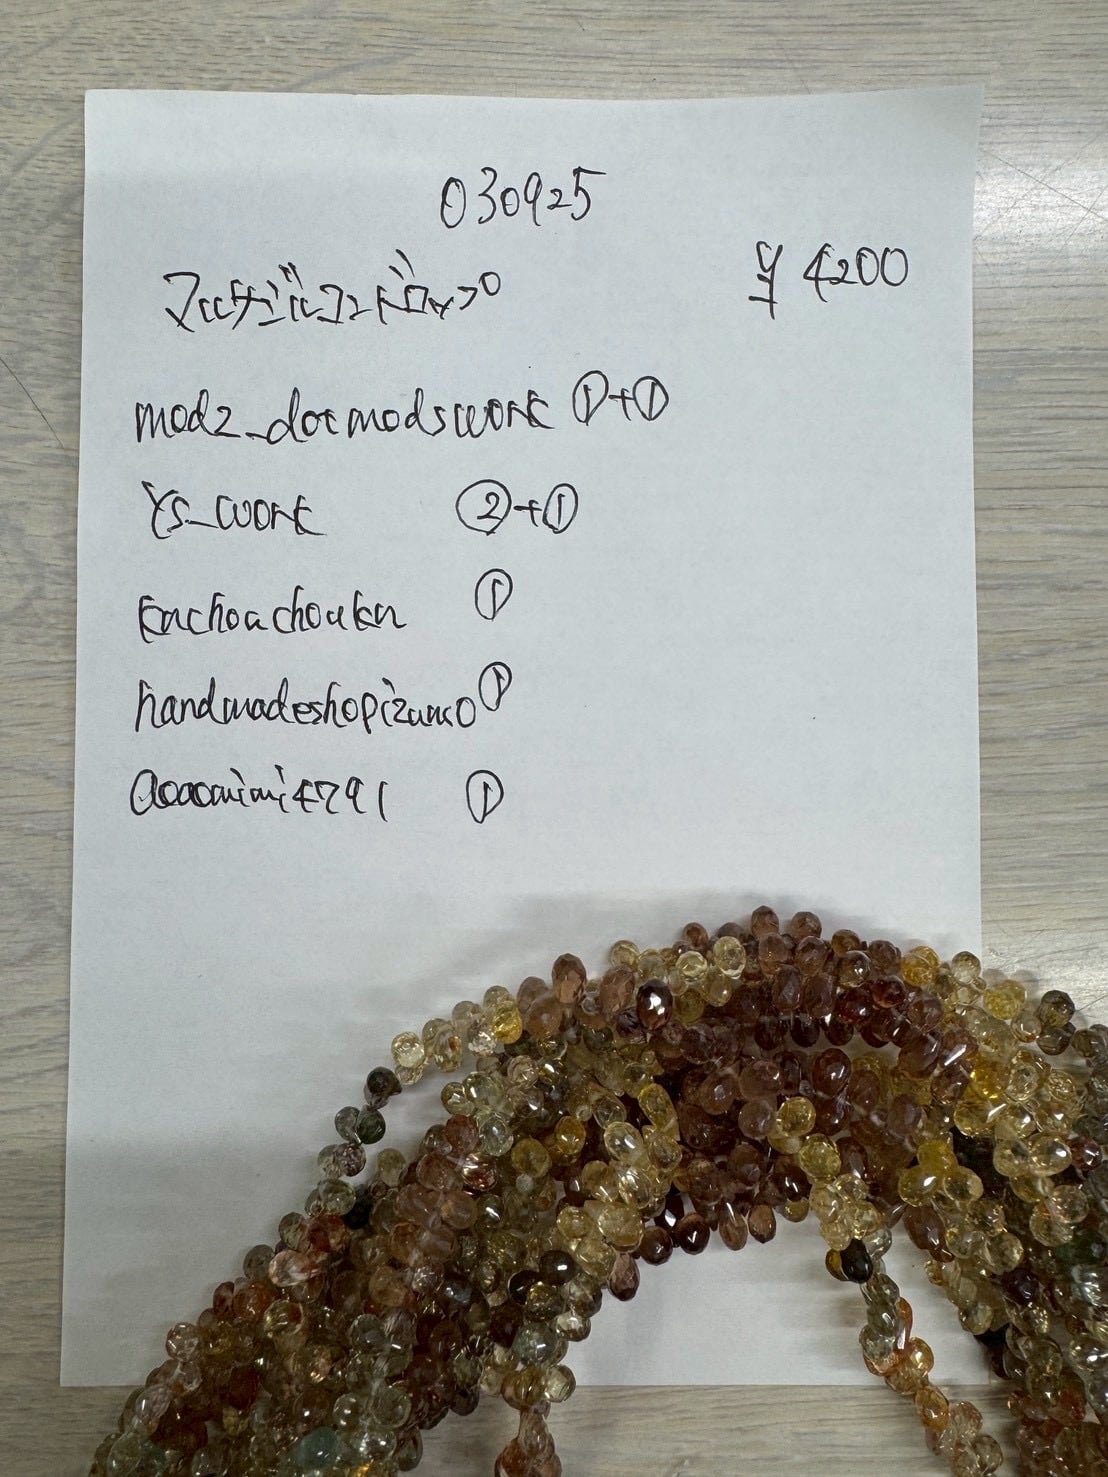 030925
マルチジルコンドロップ
¥4200
modz_dotmodswork ①+①
ys_work ②+①
handmadeshopizumo ①
①